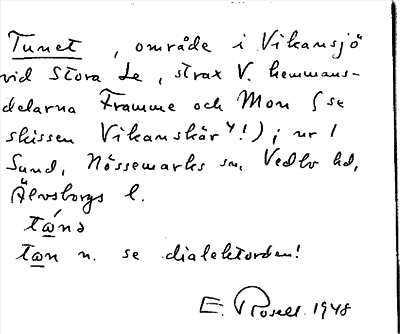 Tunet, område i Vikansjö
vid Stora Le, strax V. hemmans-
delarna Framme och Mon (se
skissen Vikanskär"!); nr 1
Sund, Nössemarks sn, Vedbo hd,
Älvsborgs l.
tώnə
tωn n. se dialektorden!
E. Rosell. 1948